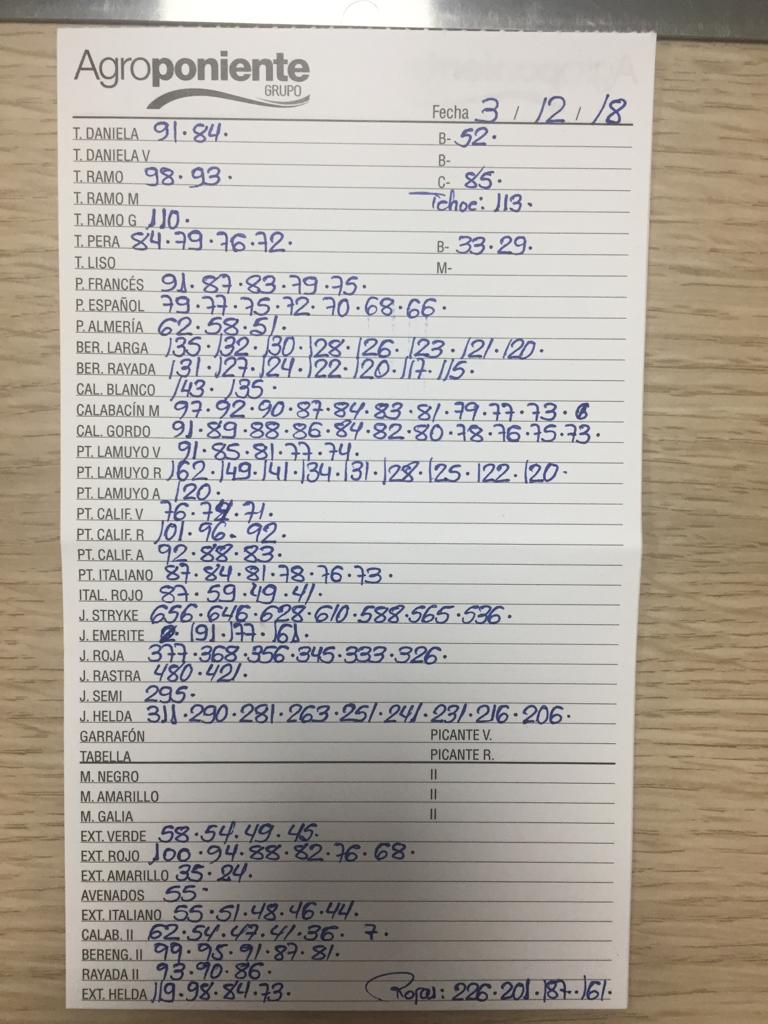 Agroponiente
GRUPO
Fecha 3 / 12 / 18
T. DANELA 91·84· B- 52·
T. DANIELA V B-
T. RAMO 98·93· C- 85·
T. RAMO M Tchoc: 113·
T. RAMO G 110·
T. PERA 84·79·76·72· B- 33·29·
T. LISO M-
P. FRANCÉS 91·87·83·79·75·
P. ESPAÑOL 79·77·75·72·70·68·66·
P. ALMERÍA 62·58·51·
BER. LARGA 135·132·130·128·126·123·121·120·
BER. RAYADA 131·127·124·122·120·117·115·
CAL. BLANCO 143·135·
CALABACÍN M 97·92·90·87·84·83·81·79·77·73·
CAL. GORDO 91·89·88·86·84·82·80·78·76·75·73·
PT. LAMUYO V 91·85·81·77·74·
PT. LAMUYO R 162·149·141·134·131·128·125·122·120·
PT. LAMUYO A 120·
PT. CALIF. V 76· 71·
PT. CALIF. R 101·96·92·
PT. CALIF. A 92·88·83·
PT. ITALIANO 87·84·81·78·76·73·
ITAL. ROJO 87·59·49·41·
J. STRYKE 656·646·628·610·588·565·536·
J. EMERITE 191·177·161·
J. ROJA 377·368·356·345·333·326·
J. RASTRA 480·421·
J. SEMI 295·
J. HELDA 311·290·281·263·251·241·231·216·206·
GARRAFÓN PICANTE V.
TABELLA PICANTE R.
M. NEGRO II
M. AMARILLO II
M. GALIA II
EXT. VERDE 58·54·49·45·
EXT. ROJO 100·94·88·82·76·68·
EXT. AMARILLO 35·24·
AVENADOS 55·
EXT. ITALIANO 55·51·48·46·44·
CALAB. II 62·54·47·41·36· 7·
BERENG. II 99·95·91·87·81·
RAYADA II 93·90·86·
EXT. HELDA 119·98·84·73· 226·201·187·161·